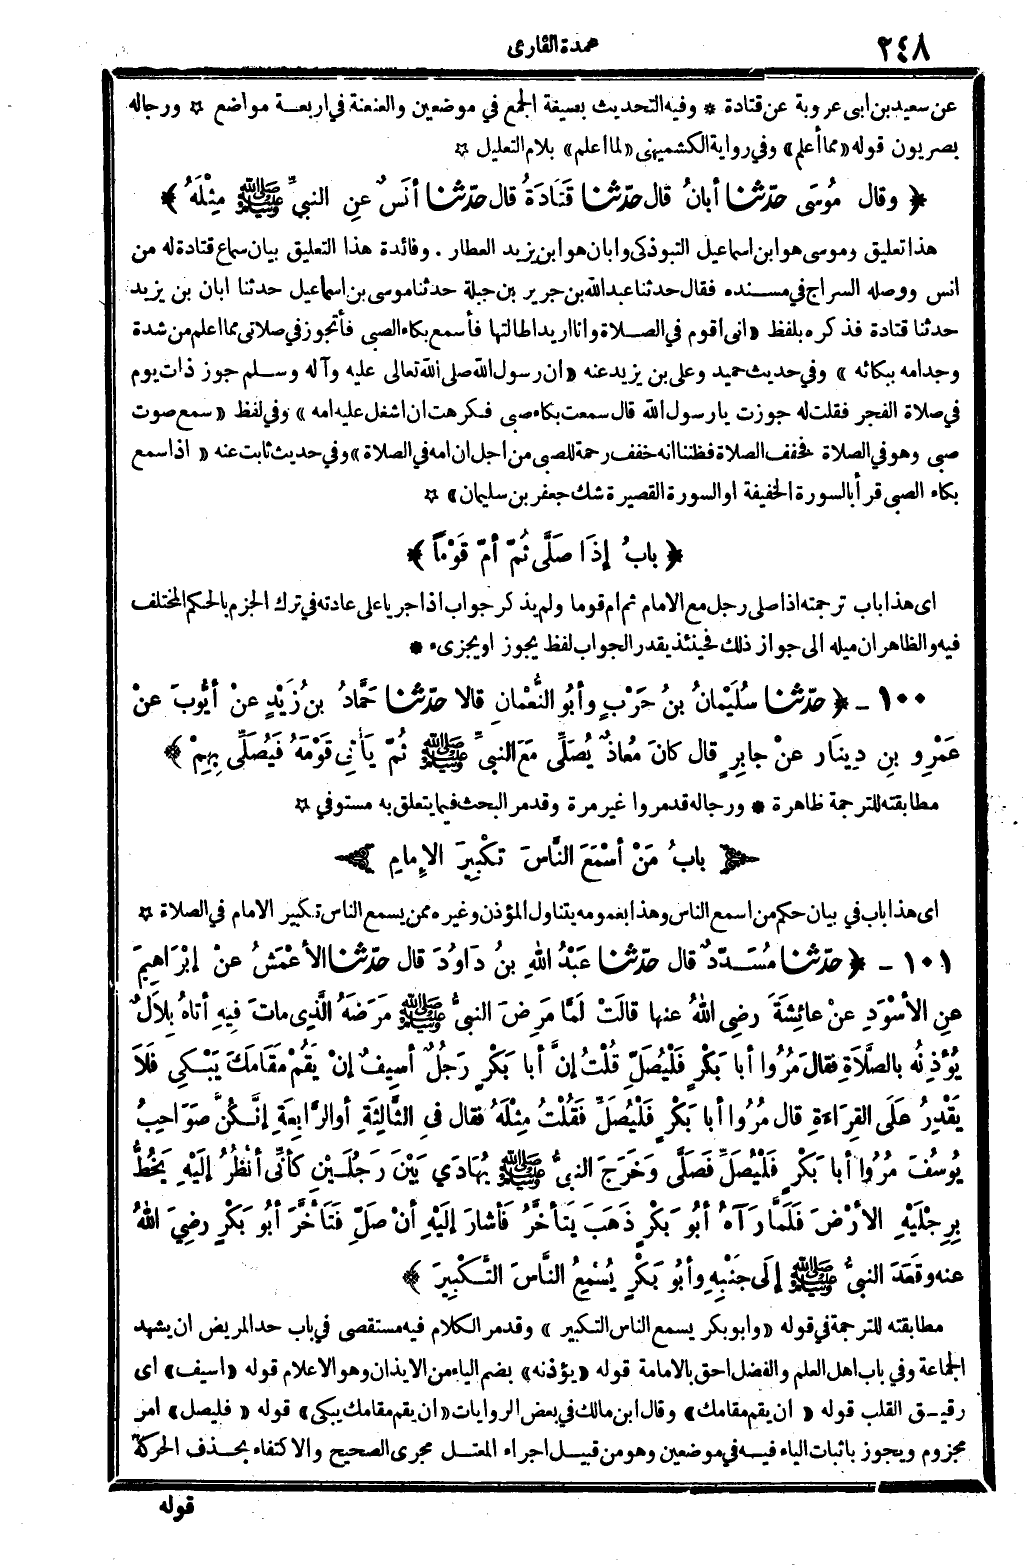 ٢٤٨
عمدة القارى
عن سعيد بن ابى عروبة عن قتادة * وفيه التحديث بصيغة الجمع في موضعين والعنعنة في اربعة مواضع ☆ ورجاله
بصريون قوله «مما أعلم» وفي رواية الكشميهنى «لما اعلم» بلام التعليل ☆
﴿ وقال مُوسَى حدّثنا أبانُ قال حدّثنا قَتَادَةُ قال حدّثنا أنَسٌ عنِ النبيِّ ﷺ مِثْلَهُ ﴾
هذا تعليق وموسى هو ابن اسماعيل التبوذكى وابان هو ابن يزيد العطار . وفائدة هذا التعليق بيان سماع قتادة له من
انس ووصله السراج في مسنده فقال حدثنا عبد الله بن جرير بن جبلة حدثنا موسى بن اسماعيل حدثنا ابان بن يزيد
حدثنا قتادة فذكره بلفظ «انى اقوم في الصلاة وانا اريد اطالتها فأسمع بكاء الصبى فأتجوز في صلاتى مما اعلم من شدة
وجد امه ببكائه» وفي حديث حميد وعلى بن يزيد عنه «ان رسول الله صلى الله تعالى عليه وآله وسلم جوز ذات يوم
في صلاة الفجر فقلت له جوزت يا رسول الله قال سمعت بكاء صبى فكرهت ان اشغل عليه امه» وفي لفظ «سمع صوت
صبى وهو في الصلاة فخفف الصلاة فظننا انه خفف رحمة للصبى من اجل ان امه في الصلاة» وفي حديث ثابت عنه «اذا سمع
بكاء الصبى قرأ بالسورة الخفيفة او السورة القصيرة شك جعفر بن سليمان» ☆
﴿ بابُ إذَا صَلَّى ثُمَّ أمَّ قَوْماً ﴾
اى هذا باب ترجمته اذا صلى رجل مع الامام ثم ام قوما ولم يذكر جواب اذا جريا على عادته في ترك الجزم بالحكم المختلف
فيه والظاهر ان ميله الى جواز ذلك فحينئذ يقدر الجواب لفظ يجوز او يجزىء *
١٠٠ ـ ﴿ حدّثنا سُلَيْمانُ بنُ حَرْبٍ وأبُو النُّعْمانِ قالا حدّثنا حَمَّادُ بنُ زَيْدٍ عنْ أيُّوبَ عنْ
عَمْرِو بنِ دِينَار عنْ جابِرٍ قال كانَ مُعاذٌ يُصَلِّى مَعَ النبيِّ ﷺ ثُمَّ يَأْتِى قَوْمَهُ فَيُصَلِّى بِهِمْ ﴾
مطابقته للترجمة ظاهرة * ورجاله قد مروا غير مرة وقد مر البحث فيما يتعلق به مستوفي ☆
بابُ مَنْ أسْمَعَ النَّاسَ تَكْبِيرَ الإمامِ
اى هذا باب في بيان حكم من اسمع الناس وهذا بعمومه يتناول المؤذن وغيره ممن يسمع الناس تكبير الامام في الصلاة ☆
١٠١ ـ ﴿ حدّثنا مُسَدَّدٌ قال حدّثنا عَبْدُ اللهِ بنُ دَاوُدَ قال حدّثنا الأعْمَشُ عنْ إبْرَاهِيمَ
عنِ الأسْوَدِ عنْ عائِشَةَ رضى اللهُ عنها قالَتْ لَمَّا مَرِضَ النبيُّ ﷺ مَرَضَهُ الَّذِى ماتَ فِيهِ أتاهُ بِلالٌ
يُؤْذِنُهُ بالصَّلَاةِ فقال مُرُوا أبا بَكْرٍ فَلْيُصَلِّ قُلْتُ إنَّ أبا بَكْرٍ رَجُلٌ أسِيفٌ إنْ يَقُمْ مَقَامَكَ يَبْكِى فَلَا
يَقْدِرُ عَلَى القِرَاءَةِ قال مُرُوا أبا بَكْرٍ فَلْيُصَلِّ فَقُلْتُ مِثْلَهُ فقال فى الثَّالِثَةِ أوِ الرَّابِعَةِ إنَّكُنَّ صَوَاحِبُ
يُوسُفَ مُرُوا أبا بَكْرٍ فَلْيُصَلِّ فَصَلَّى وَخَرَجَ النبيُّ ﷺ يُهَادَي بَيْنَ رَجُلَيْنِ كَأنِّى أنْظُرُ إلَيْهِ يَخُطُّ
بِرِجْلَيْهِ الأرْضَ فَلَمَّا رَآهُ أبُو بَكْرٍ ذَهَبَ يَتأخَّرُ فَأشارَ إلَيْهِ أنْ صَلِّ فَتَأخَّرَ أبُو بَكْرٍ رضِيَ اللهُ
عنه وقَعَدَ النبيُّ ﷺ إلَى جَنْبِهِ وأبُو بَكْرٍ يُسْمِعُ النَّاسَ التَّكْبِيرَ ﴾
مطابقته للترجمة في قوله «وابو بكر يسمع الناس التكبير» وقد مر الكلام فيه مستقصى في باب حد المريض ان يشهد
الجماعة وفي باب اهل العلم والفضل احق بالامامة قوله «يؤذنه» بضم الياء من الايذان وهو الاعلام قوله «اسيف» اى
رقيق القلب قوله «ان يقم مقامك» وقال ابن مالك في بعض الروايات «ان يقم مقامك يبكى» قوله «فليصل» امر
مجزوم ويجوز باثبات الياء فيه في موضعين وهو من قبيل اجراء المعتل مجرى الصحيح والاكتفاء بحذف الحركة
قوله